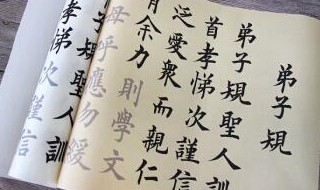 弟子規
弟子規聖人訓
首孝悌次謹信
泛愛衆而親仁
有余力則學文
母乎應勿緩
規聖人訓
孝悌次謹信